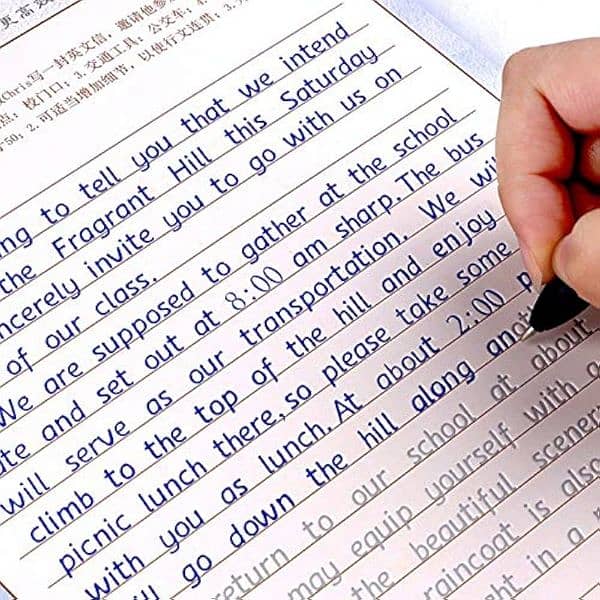 更高效
Chris写一封英文信，邀请他参
点：校门口；3.交通工具：公交车；4.
50；2.可适当增加细节，以使行文连贯；3.
ng to tell you that we intend
the Fragrant Hill this Saturday
ncerely invite you to go with us on
of our class.
We are supposed to gather at the school
te and set out at 8:00 am sharp. The bus
will serve as our transportation. We wi
climb to the top of the hill and enjoy
picnic lunch there, so please take some
with you as lunch. At about 2:00 p
ll go down the hill along ano
return to our school at about
may equip yourself with a
the beautiful scenery
raincoat is also
ght in a